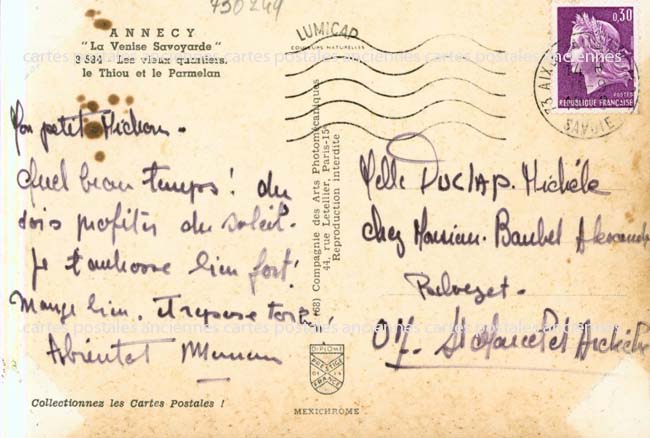 750249
ANNECY
"La Venise Savoyarde"
3 534 - Les vieux quartiers,
le Thiou et le Parmelan
LUMICAP
COULEURS NATURELLES
0,30
POSTES
REPUBLIQUE FRANÇAISE
73 AIX
SAVOIE
Mon petit Michou.
Quel beau temps! du
dois profiter du soleil.
Je t'embrasse bien fort!
Mange bien. Et repose toi!
Abientot Maman
Melle DUCLAP. Michèle
chez Monsieur. Baubet
07. St Marcel
(68) Compagnie des Arts Photomécaniques
44, rue Letellier, Paris-15e
Reproduction interdite
DIPLOME
PRESTIGE
FRANCE
MEXICHROME
Collectionnez les Cartes Postales !
cartes postales anciennes cartes postales anciennes cartes postales anciennes
cartes postales anciennes cartes postales anciennes cartes postales anciennes